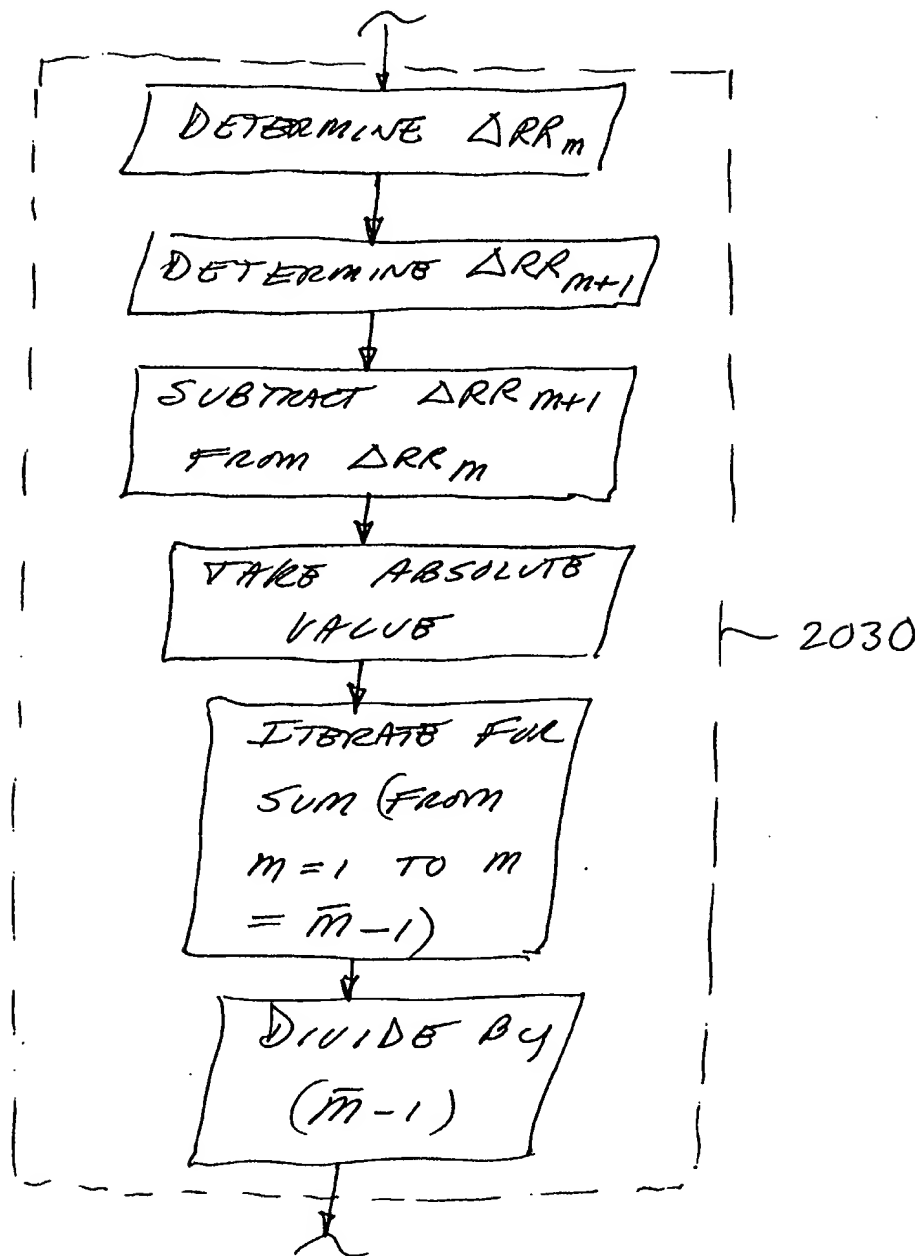 DETERMINE ΔRRm
DETERMINE ΔRRm+1
SUBTRACT ΔRRm+1
FROM ΔRRm
TAKE ABSOLUTE
VALUE
ITERATE FOR
SUM (FROM
m=1 TO m
= m̅-1)
DIVIDE BY
(m̅-1)
2030